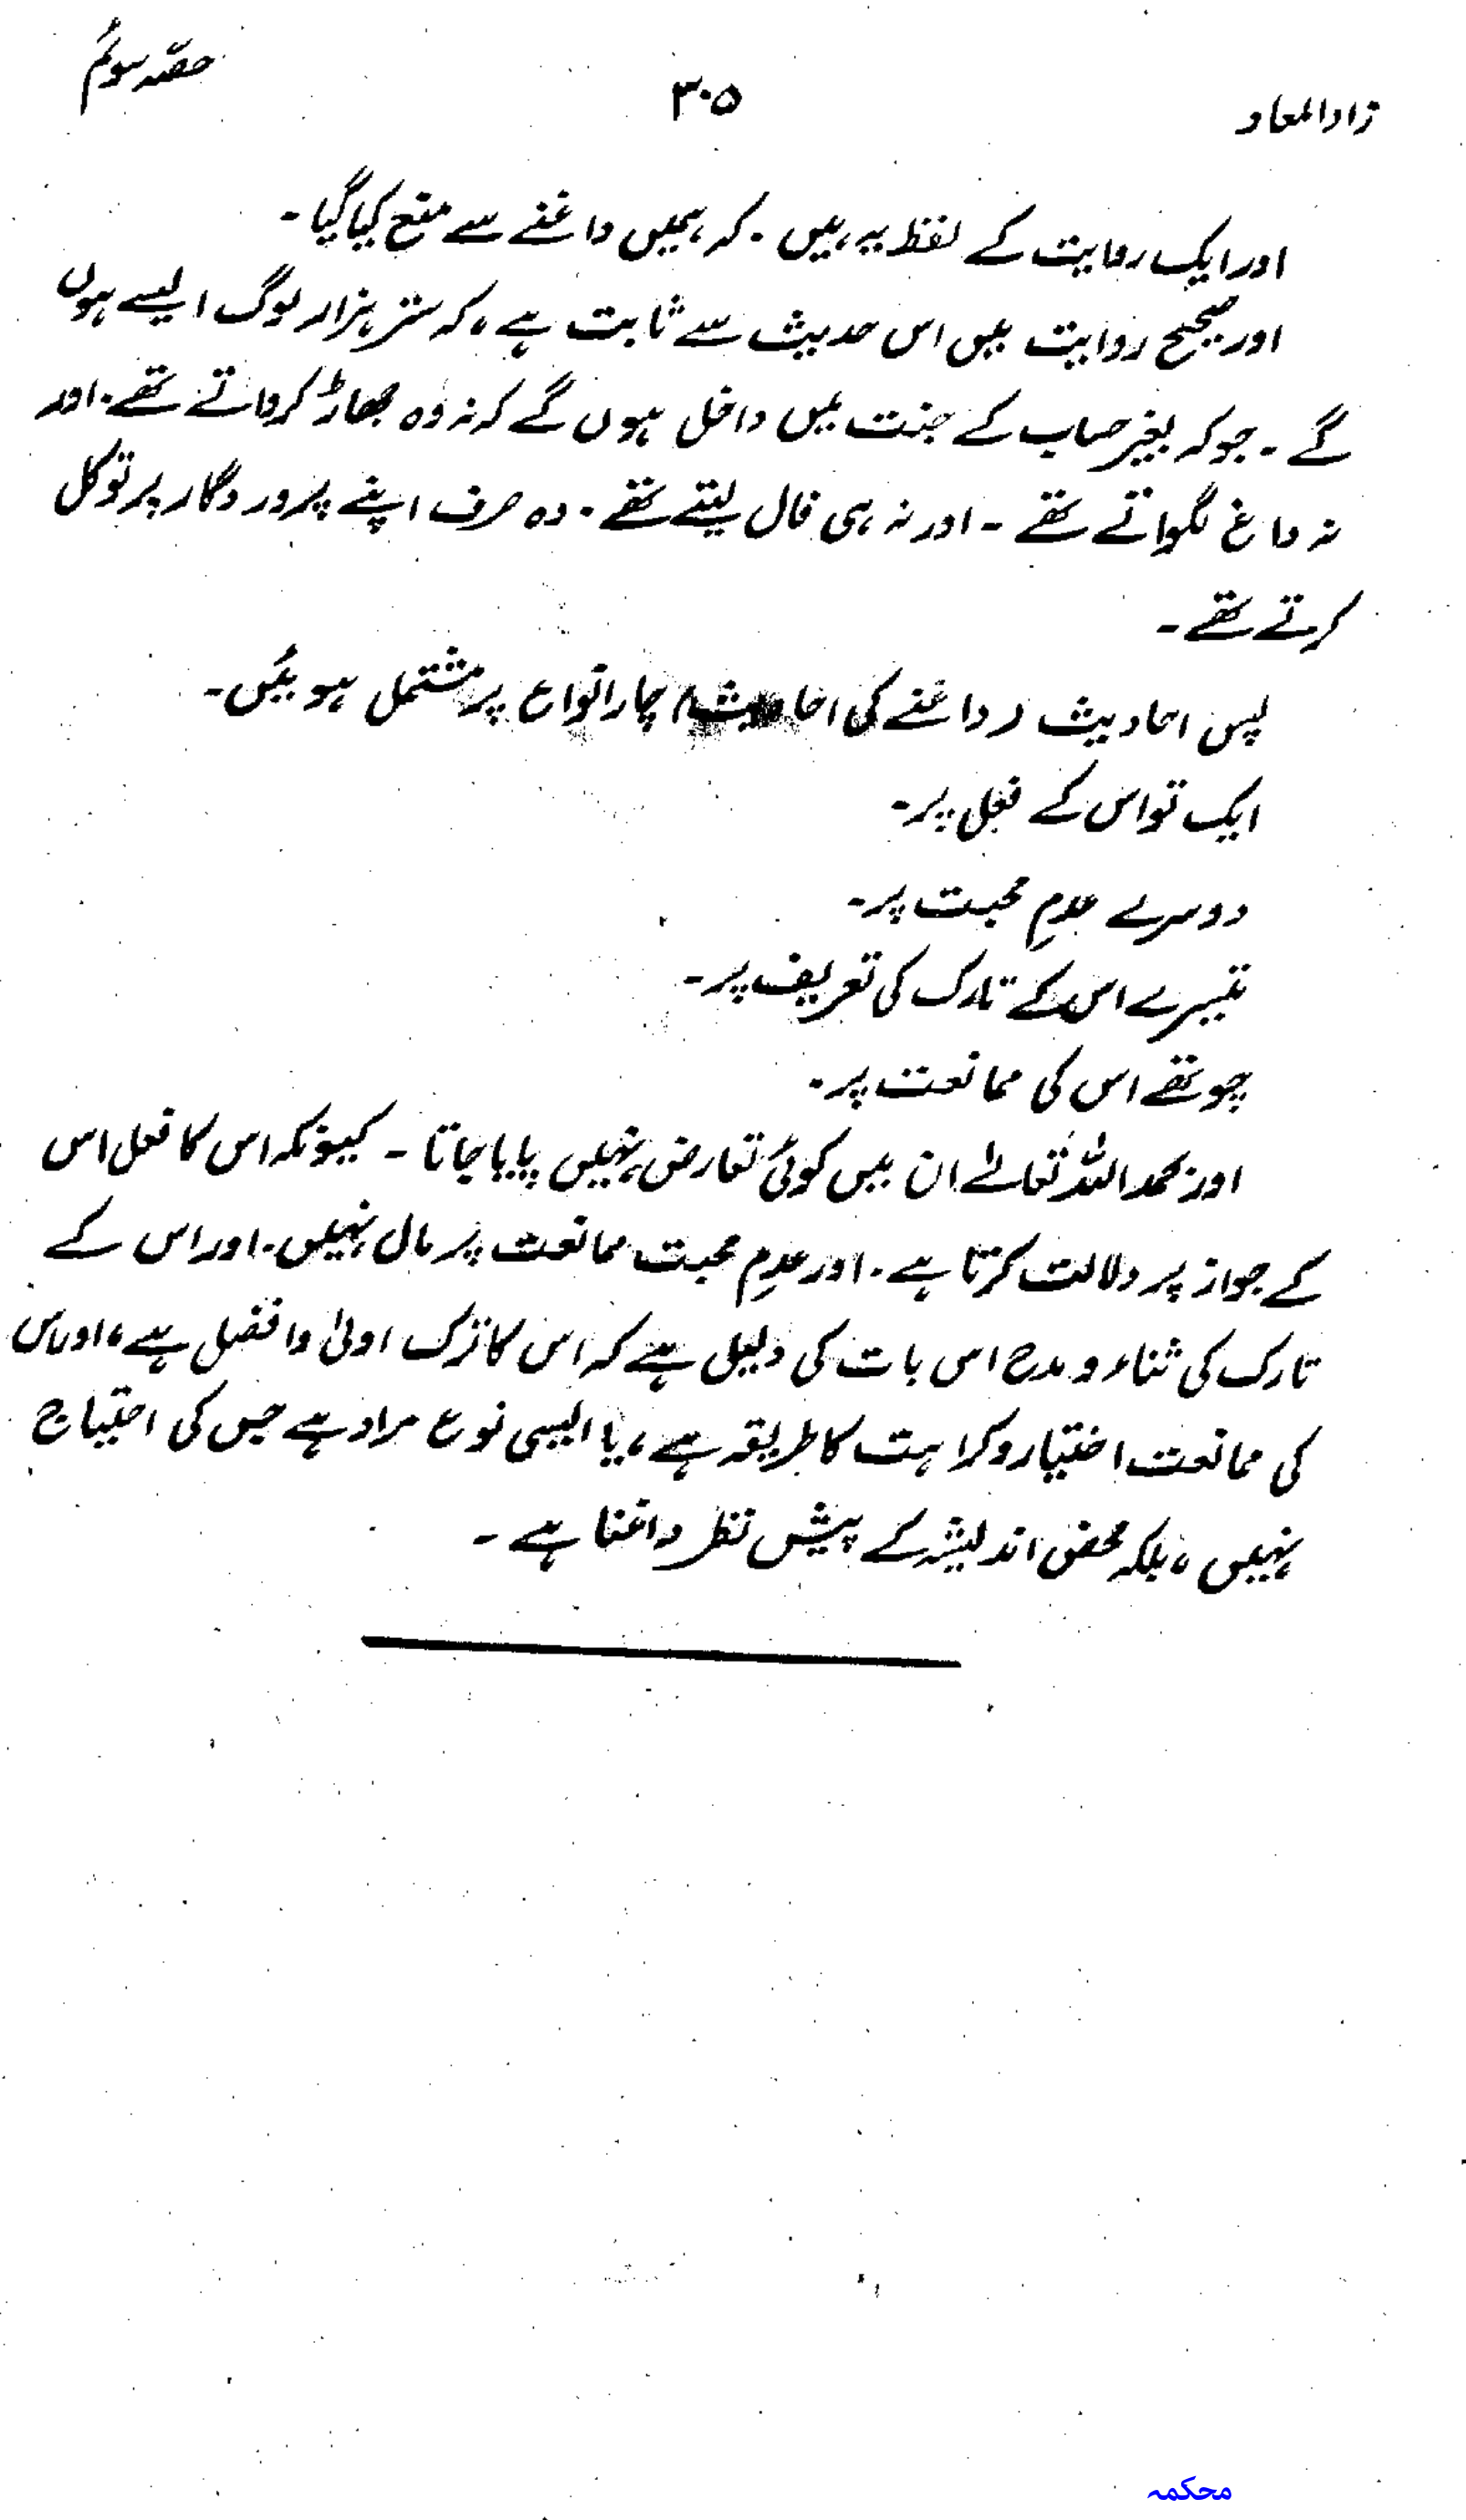 زاد المعاد
۳۰۵
حصّہ سوئم
اور ایک روایت کے لفظ یہ ہیں ۔ کہ ہمیں داغنے سے منع کیا گیا ۔
اور صحیح روایت میں اس حدیث سے ثابت ہے، کہ ستر ہزار لوگ ایسے ہوں
گے ۔ جو کہ بغیر حساب کے جنت میں داخل ہوں گے کہ نہ وہ جھاڑ کرواتے تھے ۔ اور
نہ داغ لگواتے تھے ۔ اور نہ ہی فال لیتے تھے ۔ وہ صرف اپنے پروردگار پر توکل
کرتے تھے ۔
پس احادیث (داغنے کی احادیث) چار انواع پر مشتمل ہوئیں ۔
ایک تو اس کے فعل پر ۔
دوسرے عدمِ محبت پر ۔
تیسرے اس کے تارک کی تعریف پر ۔
چوتھے اس کی ممانعت پر ۔
اور بحمد اللہ تعالےٰ ان میں کوئی تعارض نہیں پایا جاتا ۔ کیونکہ اس کا فعل اس
کے جواز پر دلالت کرتا ہے ۔ اور عدمِ محبت ممانعت پر دال نہیں ۔ اور اس کے
تارک کی ثناء و مدح اس بات کی دلیل ہے کہ اس کا ترک اولیٰ وافضل ہے، اور اس
کی ممانعت اختیار و کراہت کا طریقہ ہے، یا ایسی نوع مراد ہے جس کی احتیاج
نہیں، بلکہ محض اندیشہ کے پیش نظر داغنا ہے ۔
محکمہ